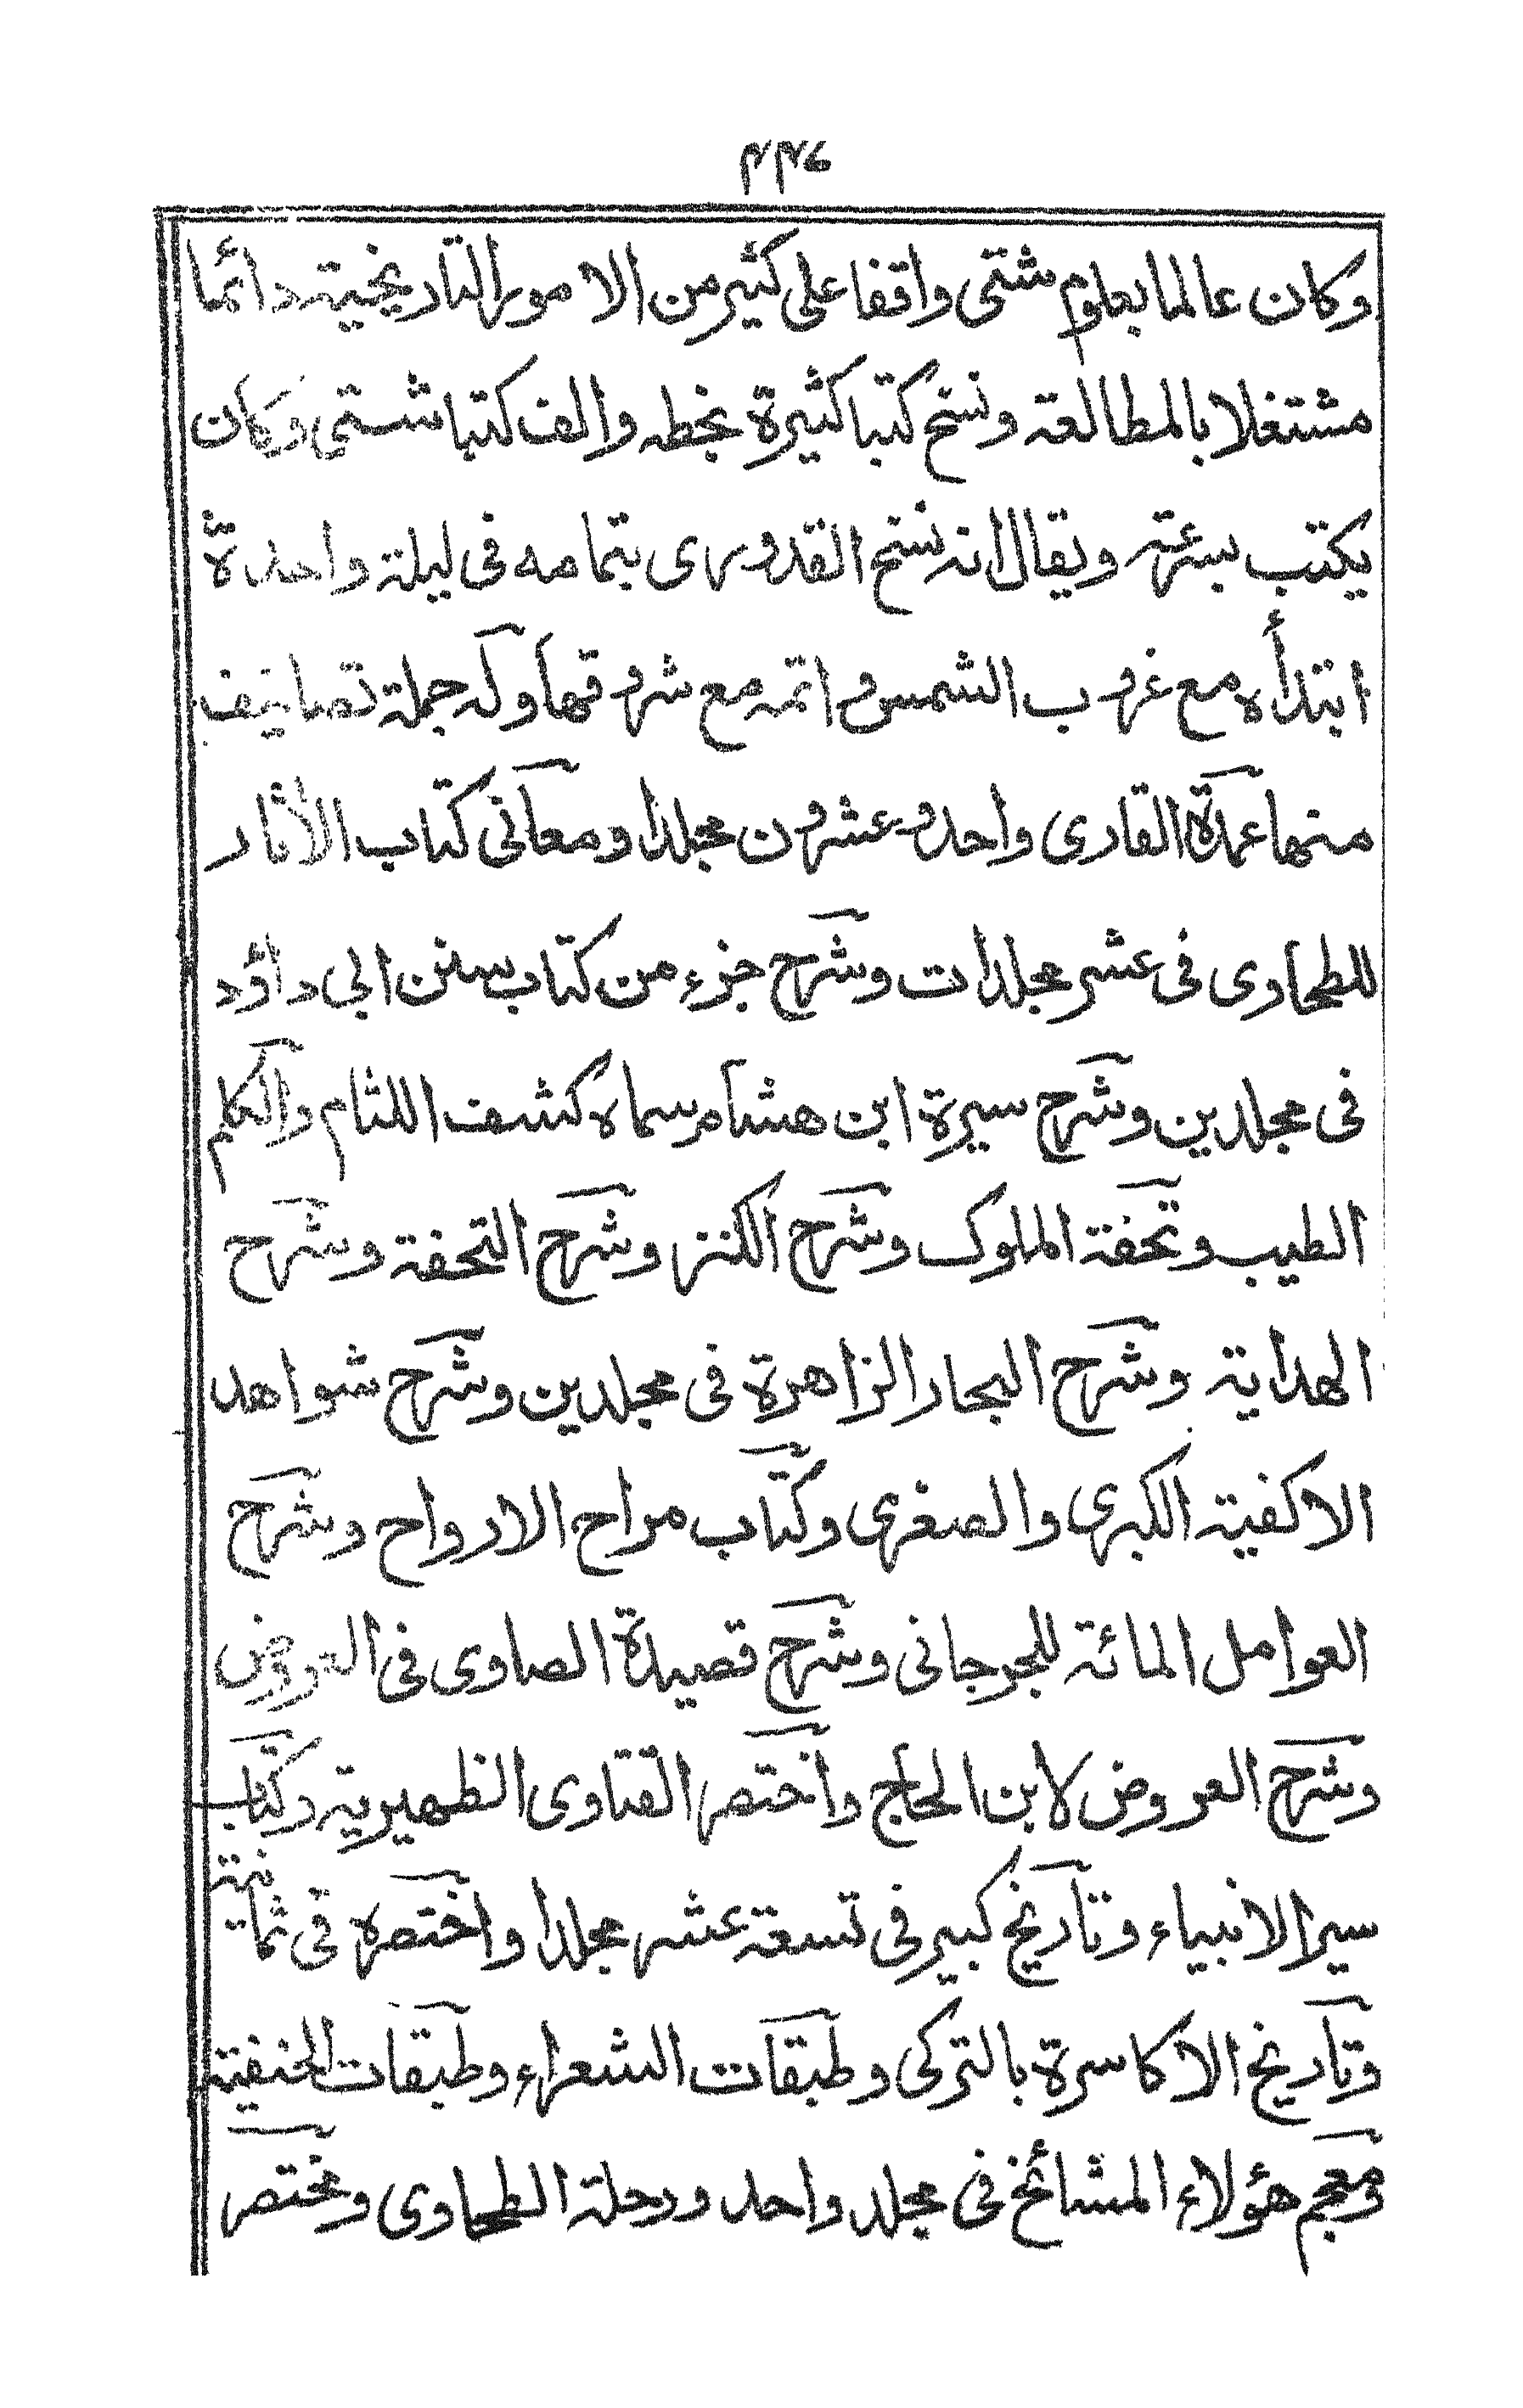 ٤٣٦
وكان عالما بعلوم شتى واقفا على كثير من الامور التاريخية دائما
مشتغلا بالمطالعة ونسخ كتبا كثيرة بخطه والف كتبا شتى وكان
يكتب بسرعة ويقال انه نسخ القدورى بتمامه فى ليلة واحدة
ابتدأه مع غروب الشمس و اتمه مع شروقها وله جملة تصانيف
منها عمدة القارى واحد و عشرون مجلدا و معانى كتاب الأثار
للطحاوى فى عشر مجلدات وشرح جزء من كتاب سنن ابي داؤد
فى مجلدين وشرح سيرة ابن هشام سماه كشف اللثام والكلم
الطيب وتحفة الملوك وشرح الكنز وشرح التحفة وشرح
الهداية وشرح البحار الزاهرة فى مجلدين وشرح شواهد
الاكفية الكبرى والصغرى وكتاب مراح الارواح وشرح
العوامل المائة للجرجانى وشرح قصيدة الصاوى فى العروض
وشرح العروض لابن الحاج واختصر الفتاوى الظهيرية وكتاب
سير الانبياء وتاريخ كبير فى تسعة عشر مجلدا واختصره فى ثمانية
وتاريخ الاكاسرة بالتركى وطبقات الشعراء وطبقات الحنفية
ومعجم هؤلاء المشائخ فى مجلد واحد ورحلة الطحاوى ومختصر